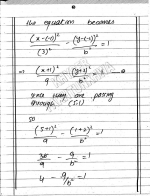 the equation becomes
(x-(-1))²/(3)² - (y-(-2))²/b² = 1
⇒ (x+1)²/9 - (y+2)²/b² = 1
since they are passing
through (5,1)
so
(5+1)²/9 - (1+2)²/b² = 1
36/9 - 9/b² = 1
4 - 9/b² = 1